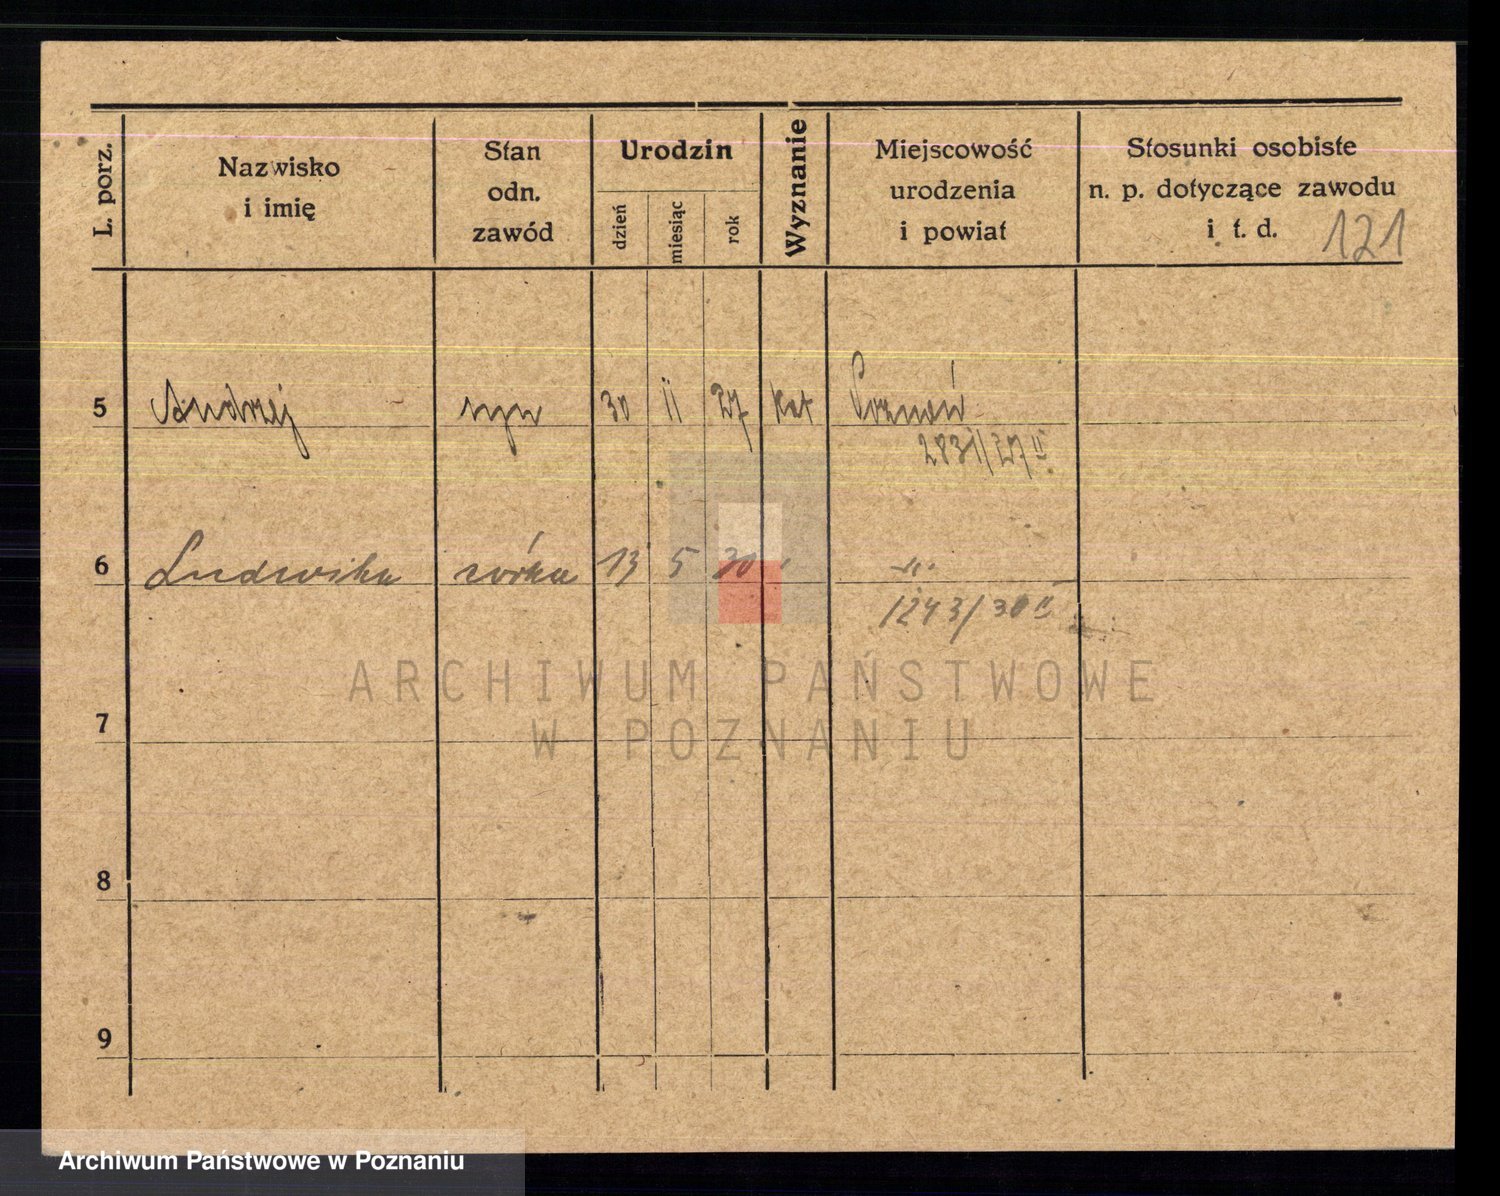 L. porz.
Nazwisko
i imię
Stan
odn.
zawód
Urodzin
dzień
miesiąc
rok
Wyznanie
Miejscowość
urodzenia
i powiat
Stosunki osobiste
n. p. dotyczące zawodu
i t. d.
121
5 Andrzej syn 30 11 27 kat Poznań
2831/27 II
6 Ludwika córka 13 5 30 " -"-
1243/30 II
ARCHIWUM PAŃSTWOWE
W POZNANIU
7
8
9
Archiwum Państwowe w Poznaniu